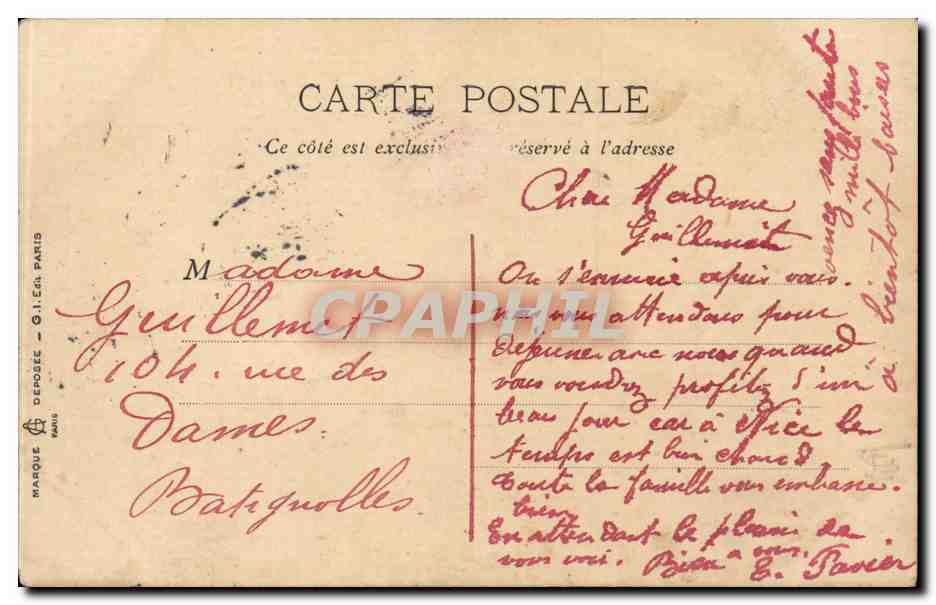 CARTE POSTALE
Ce côté est exclusi réservé à l'adresse
MARQUE DEPOSÉE - G.I. Edit PARIS
PARIS
Madame
Guillemet
104. rue des
Dames
Batignolles
CPAPHIL
Chère Madame
Guillemet
On s'ennuie depuis vous.
nous vous attendons pour
déjeuner avec nous quand
vous voudrez profitez d'un
beau jour car à Nice le
temps est bien chaud
Toute la famille vous embrasse.
bien
En attendant le plaisir de
vous voir. Bien à vous. E. Pavier
venez sans faute
mille bons
baisers
à bientôt